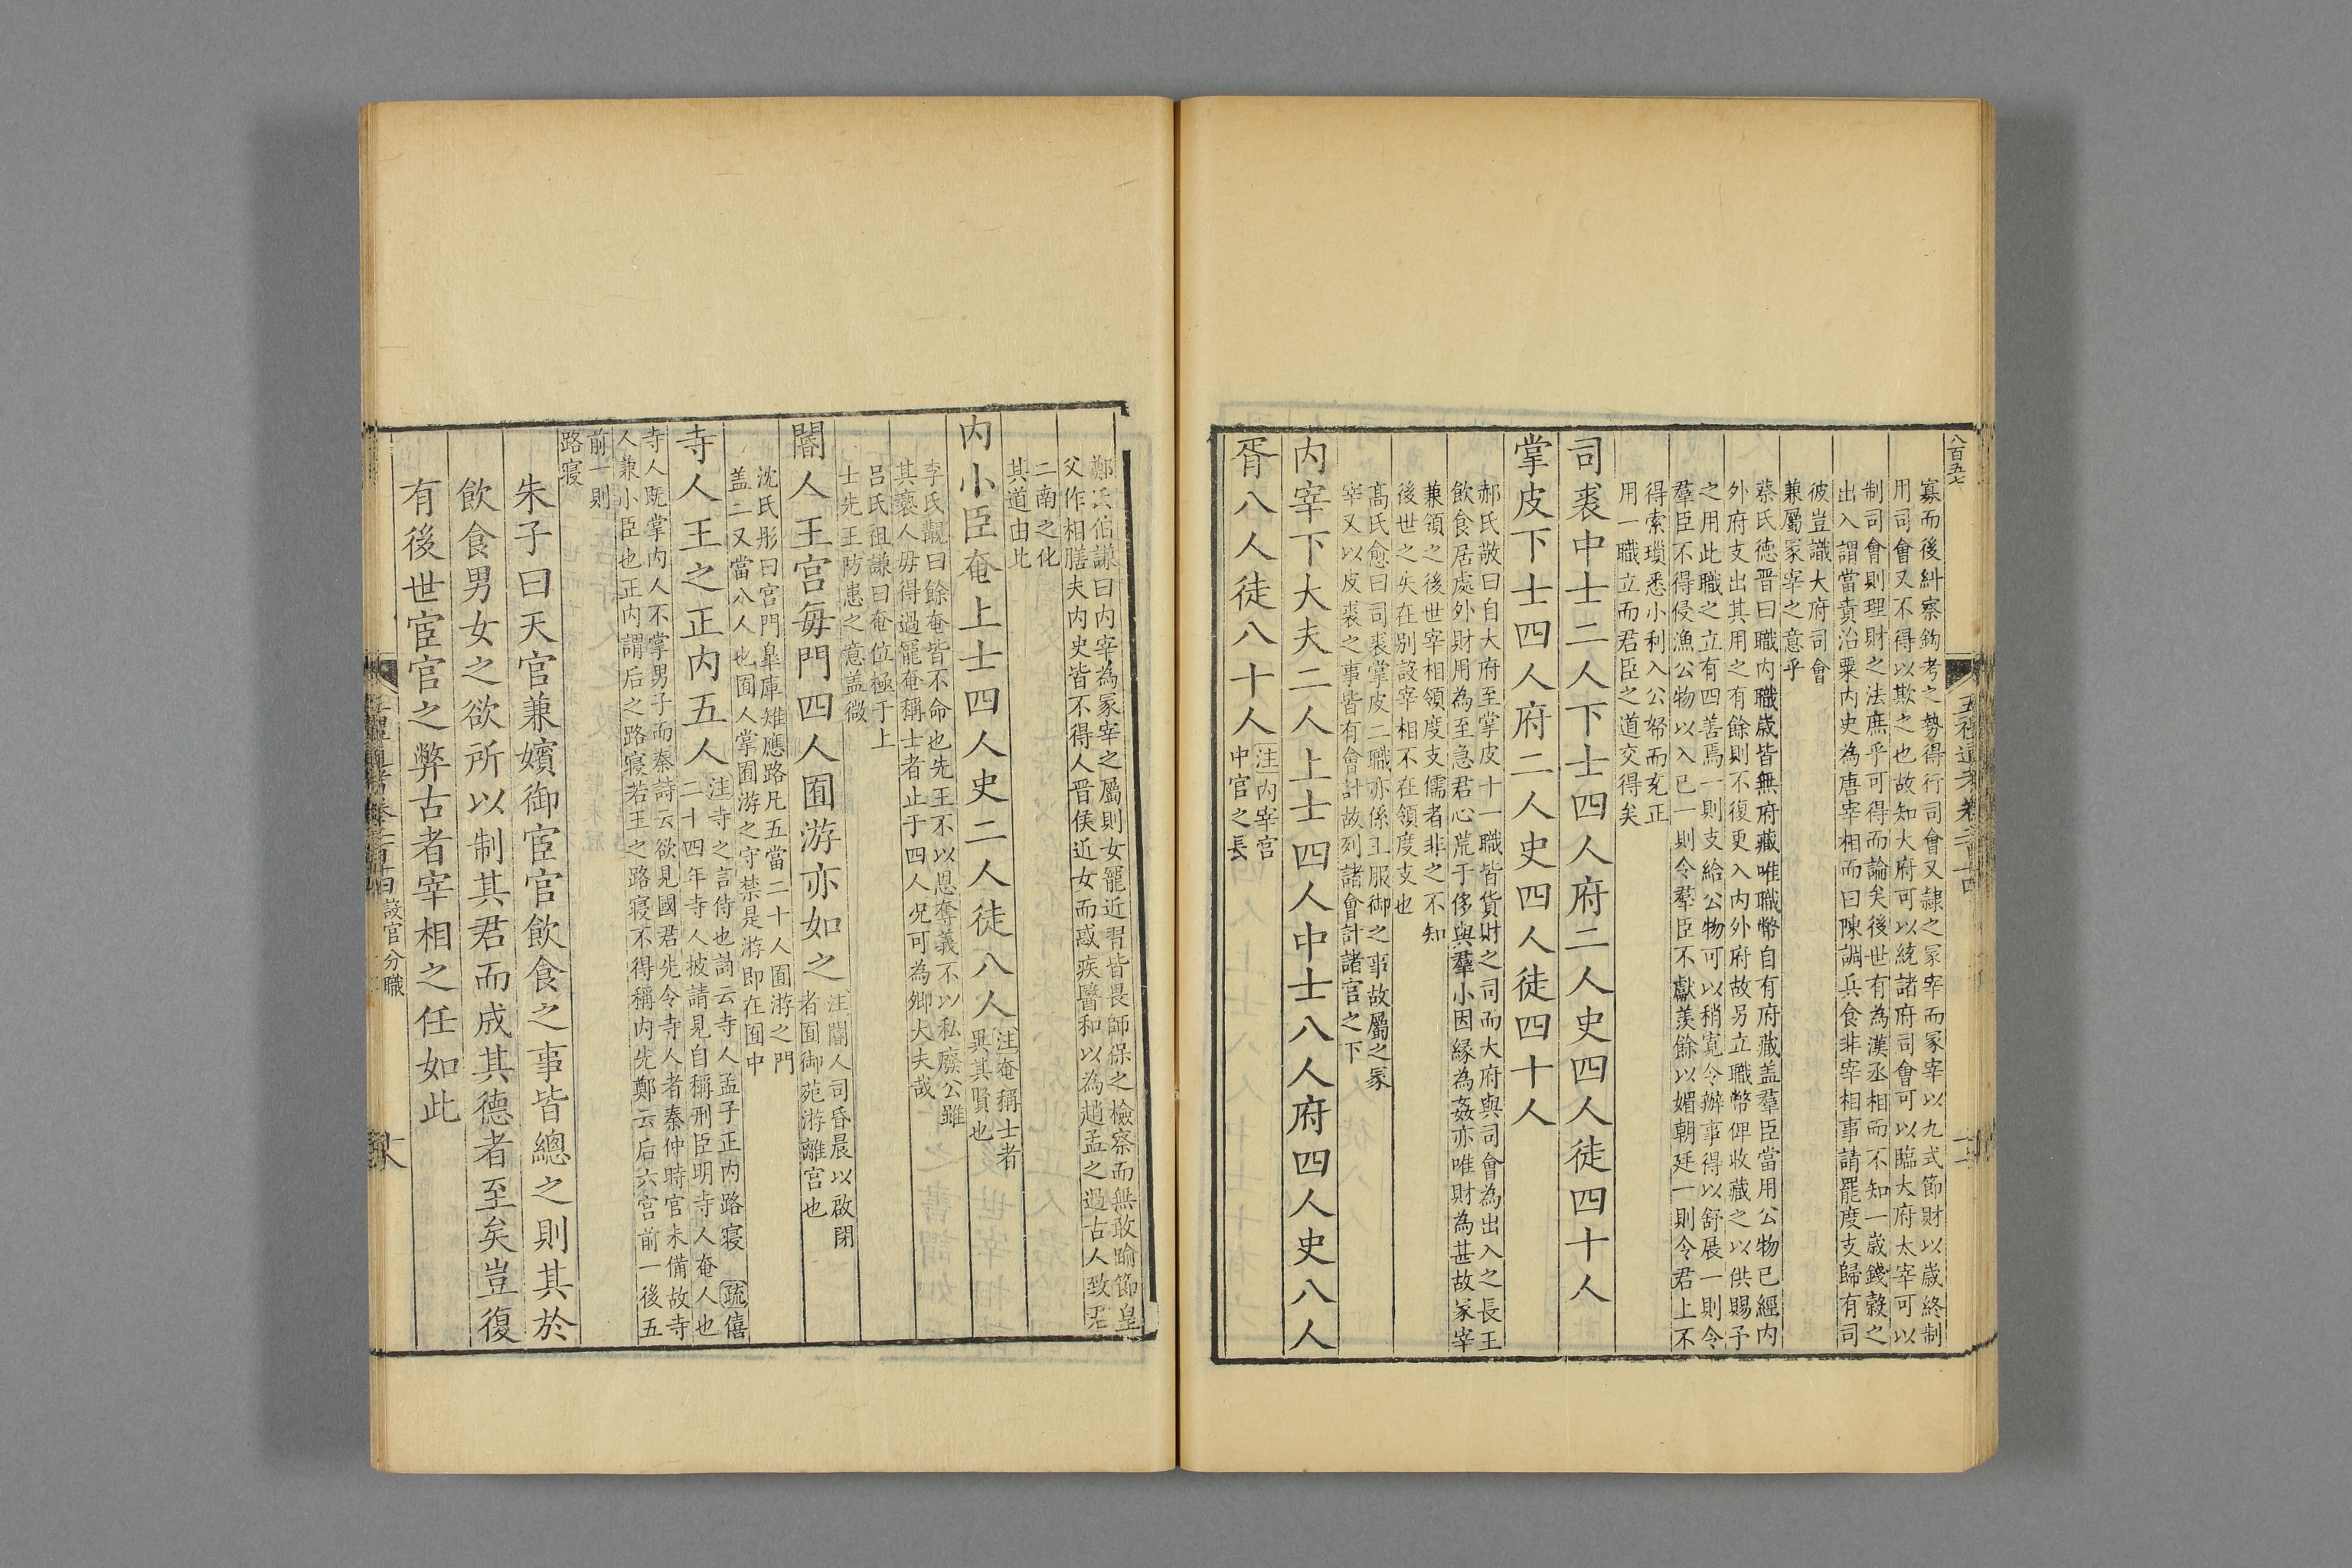 八百五七
五禮通考卷二百十四
十二
寡而後糾察鉤考之勢得行司會又隷之冢宰而冢宰以九式節財以歲終制
用司會又不得以欺之也故知大府可以統諸府司會可以臨大府太宰可以
制司會則理財之法庶乎可得而論矣後世有為漢丞相而不知一歲錢糓之
出入謂當責治粟內史為唐宰相而曰陳調兵食非宰相事請罷度支歸有司
彼豈識大府司會
兼屬冢宰之意乎
蔡氏德晋曰職内職歲皆無府藏唯職幣自有府藏盖羣臣當用公物已經内
外府支出其用之有餘則不復更入内外府故另立職幣俾收藏之以供賜予
之用此職之立有四善焉一則支給公物可以稍寛令辦事得以舒展一則令
羣臣不得侵漁公物以入已一則令羣臣不獻羡餘以媚朝廷一則令君上不
得索瑣悉小利入公帑而充正
用一職立而君臣之道交得矣
司裘中士二人下士四人府二人史四人徒四十人
掌皮下士四人府二人史四人徒四十人
郝氏敬曰自大府至掌皮十一職皆貨財之司而大府與司會為出入之長王
飲食居處外財用為至急君心荒于侈與羣小因緣為姦亦唯財為甚故冢宰
兼領之後世宰相領度支儒者非之不知
後世之失在别設宰相不在領度支也
髙氏愈曰司裘掌皮二職亦係王服御之事故屬之冢
宰又以皮裘之事皆有會計故列諸會計諸官之下
内宰下大夫二人上士四人中士八人府四人史八人
胥八人徒八十人
注内宰宫
中官之長
鄭氏伯謙曰内宰為冢宰之屬則女寵近習皆畏師保之檢察而無敢踰節皇
父作相膳夫内史皆不得人晋侯近女而惑疾醫和以為趙孟之過古人致君
二南之化
其道由此
内小臣奄上士四人史二人徒八人
注奄稱士者
異其賢也
李氏覯曰餘奄皆不命也先王不以恩奪義不以私廢公雖
其褻人毋得過寵奄稱士者止于四人况可為卿大夫哉
吕氏祖謙曰奄位極于上
士先王防患之意盖微
閽人王宫每門四人囿游亦如之
注閽人司昏晨以啟閉
者囿御苑游離宫也
沈氏彤曰宫門臯庫雉應路凡五當二十人囿游之門
盖二又當八人也囿人掌囿游之守禁是游即在囿中
寺人王之正内五人
注寺之言侍也詩云寺人孟子正内路寝 疏僖
二十四年寺人披請見自稱刑臣明寺人奄人也
寺人既掌内人不掌男子而秦詩云欲見國君先令寺人者秦仲時官未備故寺
人兼小臣也正内謂后之路寝若王之路寝不得稱内先鄭云后六宫前一後五
前一則
路寝
朱子曰天官兼嬪御宦官飲食之事皆總之則其於
飲食男女之欲所以制其君而成其德者至矣豈復
有後世宦官之弊古者宰相之任如此
設官分職